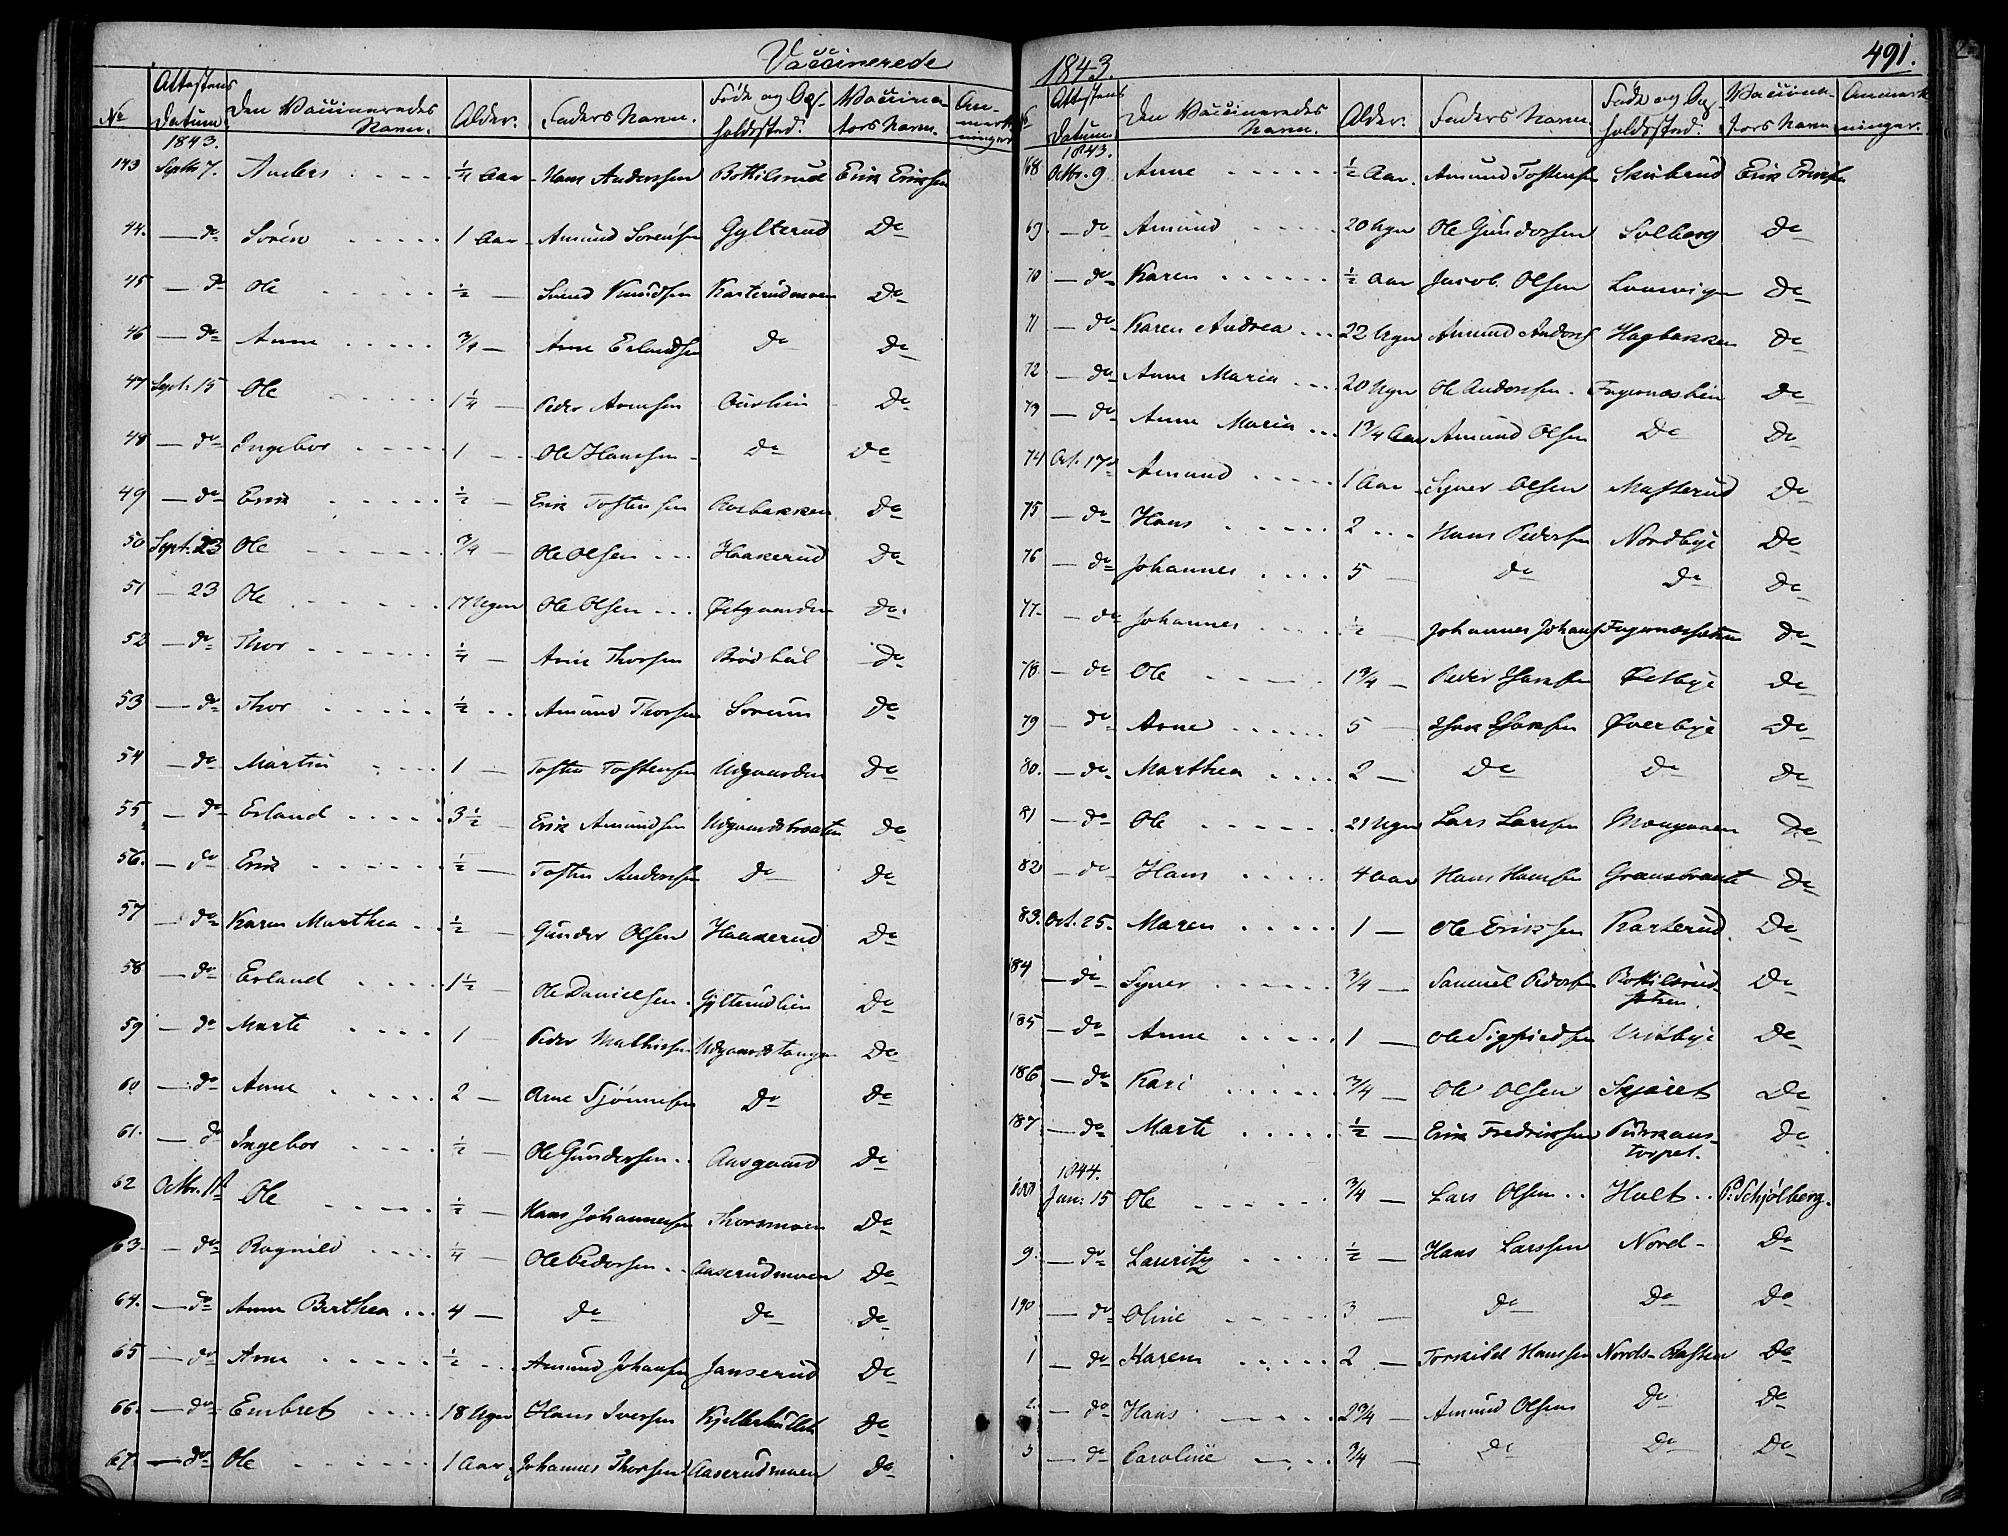 Vaccinerede
1843.
491.
No Attestens Datum. Den Vaccineredes Navn. Alder. Faders Navn. Føde og Opholdssted. Vaccinators Navn. Anmærkninger.
1843.
143 Septbr 7. Anders ½ Aar Hans Anderssen Bottilsrud Erik Erikssen
44. — do Sören 1 Aar Amund Sörensen Gylterud Do
45 — do Ole ½ — Svend Knudsen Karterudmoen Do
46 — do Anne ¾ — Arne Erlandsen Do Do
47 Sept. 15 Ole 1¼ — Peder Arnesen Do
48 — do Ingebor 1 — Ole Hansen Do Do
49 — do Erik ½ — Erik Tostensen Aasbakken Do
50 Sept. 23 Ole ¾ — Ole Olsen Haakerud Do
51 — 23 Ole 17 Uger Ole Olsen Østgaarden Do
52 — do Thor ¼ — Arne Thorsen Do
53 — do Thor ½ Amund Thorsen Soreum Do
54 — do Martin 1 — Tosten Tostensen Udgaarden Do
55. — do Erland 3½ — Erik Amundsen Udgaardsbraaten Do
56. — do Erik ½ — Tosten Anderssen Do Do
57 — do Karen Marthea ½ — Gunder Olsen Haakerud Do
58 — do Erland 1½ — Ole Danielsen Gylterudlien Do
59 — do Marte 1 — Peder Mathissen Udgaardstangen Do
60 — do Anne 2 — Arne Sjönnesen Do Do
61. — do Ingebor ½ — Ole Gundersen Aasgaard Do
62 Octbr. 1st Ole ½ — Hans Johannessen Thorsmoen Do
63. — do Ragnild ¼ — Ole Pedersen Aaserudmoen Do
64. — do Anne Berthea 4 — Do Do Do
65 — do Arne ½ Amund Johansen Janserud Do
66. — do Embret 18 Uger Hans Iversen Do
67. — do Ole 1 Aar. Johannes Thorsen Aaserudmoen Do
No Attestens Datum. Den Vaccineredes Navn. Alder. Faders Navn Føde og Opholdssted. Vaccinators Navn Anmærkninger.
1843.
168 Octbr. 9 Anne ½ Aar. Amund Tostensen Skinbrud Erik Eriksen
69 — do Amund 20 Uger Ole Gundersen Solberg Do
70 — do Karen ½ Aar Jacob Olsen Do
71 — do Karen Andrea 22 Uger Amund Anders Hagbakken Do
72 — do Anne Maria 20 Uger Ole Anderssen Do
73 — do Anne Maria 1¾ Aar Amund Olsen Do Do
74 Oct. 17 Amund 1 Aar Syver Olsen Masterud Do
75 — do Hans 2 Hans Pedersen Nordbye Do
76 — do Johannes 5 — Do Do Do
77. — do Johannes ½ — Johannes Johans Do
78. — do Ole 1¾ — Peder Hansen Østbye Do
79 — do Arne 5 — Isak Isaksen Øverbye Do
80. — do Marthea 2 — Do Do Do
81 — do Ole 21 Uger Lars Larsen Moengaaen Do
82 — do Hans 4 Aar Hans Hansen Granebraate Do
83. Oct. 25. Maren 1 — Ole Erikssen Karterud. Do
184 — do Syver ¾ — Samuel Pedersen Bottilsrud- Do
185 — do Anne 1 — Ole Sigfridsen Vestbye Do
186 — do Kari ¾ — Ole Olsen Skjöret Do
187 — do Marte ½ — Erik Fredriksen Do
torpet.
1844.
188 Jan. 15 Ole ¾ — Lars Olsen Holt P. Schjölberg.
9. — do Lauritz ½ — Hans Larssen Nord- Do
190 — do Oline 3 Do Do Do
1 — do Karen 2 — Torkild Hanssen Do
2. — do Hans 2¾ — Amund Olsen Do Do
3 — do Caroline ¾ — Do Do Do